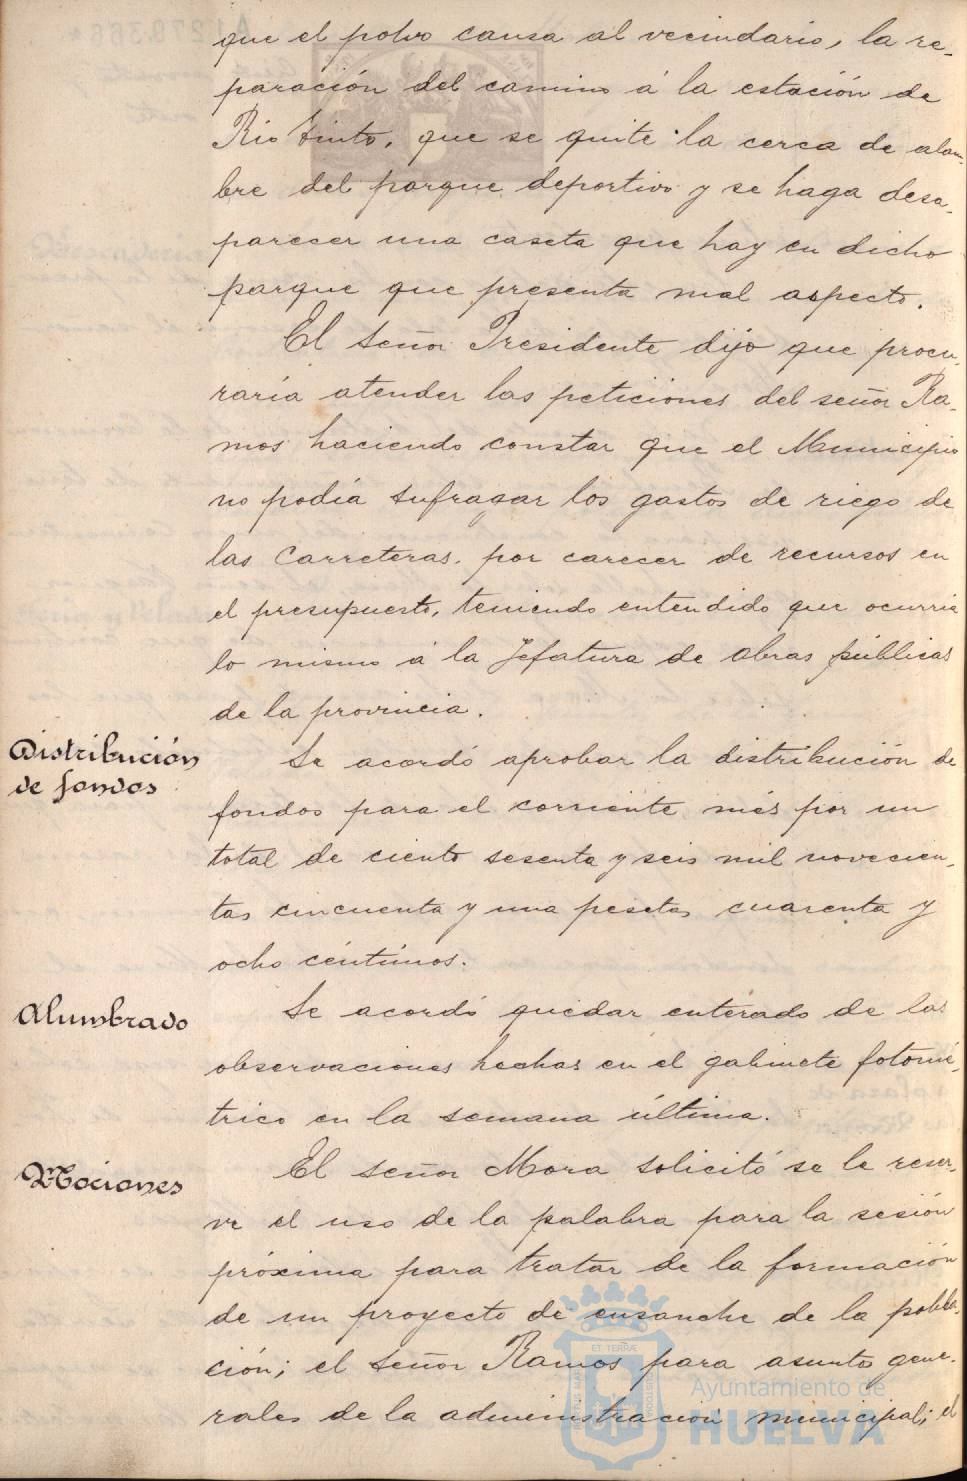 que el polvo causa al vecindario, la re-
paración del camino á la estación de
Rio tinto, que se quite la cerca de alam-
bre del parque deportivo y se haga desa-
parecer una caseta que hay en dicho
parque que presenta mal aspecto.
El señor Presidente dijo que procu-
raría atender las peticiones del señor Ra-
mos haciendo constar que el Municipio
no podía sufragar los gastos de riego de
las Carreteras, por carecer de recursos en
el presupuesto, teniendo entendido que ocurría
lo mismo á la Jefatura de Obras públicas
de la provincia.
Distribución
de fondos
Se acordó aprobar la distribución de
fondos para el corriente més por un
total de ciento sesenta y seis mil novecien-
tas cincuenta y una pesetas cuarenta y
ocho céntimos.
Alumbrado
Se acordó quedar enterado de las
observaciones hechas en el gabinete fotomé-
trico en la semana última.
Mociones
El señor Mora solicitó se le reser-
ve el uso de la palabra para la sesión
próxima para tratar de la formación
de un proyecto de ensanche de la pobla-
ción; el señor Ramos para asuntos gene-
rales de la administración municipal; el
Ayuntamiento de
HUELVA